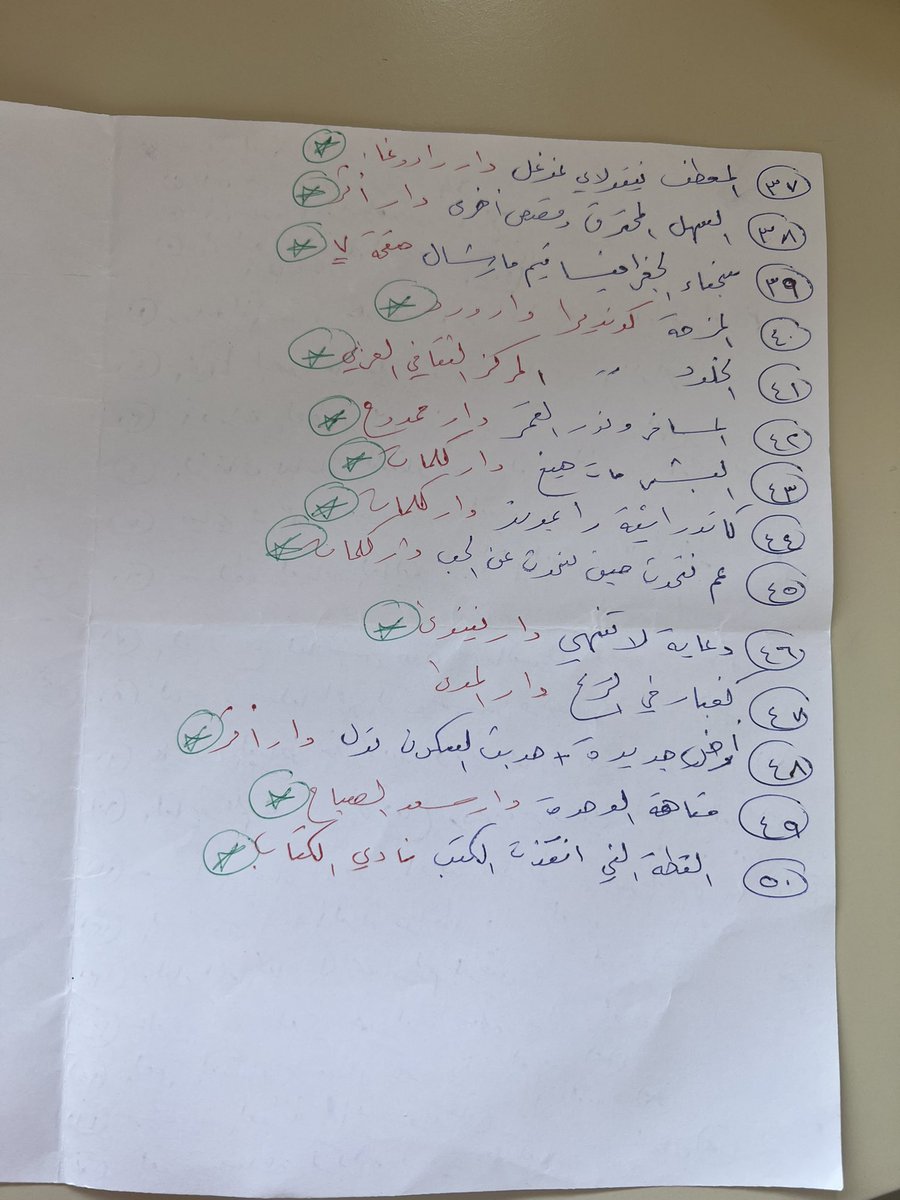 ٣٧ المعطف نيقولاي غوغل دار راروغا.
٣٨ السهل المحترق وقصص أخرى دار أثر
٣٩ سجناء الجغرافيا تيم مارشال صفحة ٧
٤٠ المزحة كونديرا دار ورد
٤١ الخلود ،، المركز الثقافي العربي
٤٢ المسافر ونور القمر دار ممدوح
٤٣ مات هيغ دار كلمات
٤٤ كاتدرائية رايموند دار كلمات
٤٥ عم نتحدث حين نتحدث عن الحب دار كلمات
٤٦ دعاية لا تنتهي دار نينوى
٤٧ كغبار في الريح دار المدى
٤٨ أرض جديدة + حديث السكون تول دار أثر
٤٩ متاهة الوحدة دار سعاد الصباح
٥٠ القطة التي انقذت الكتب نادي الكتاب